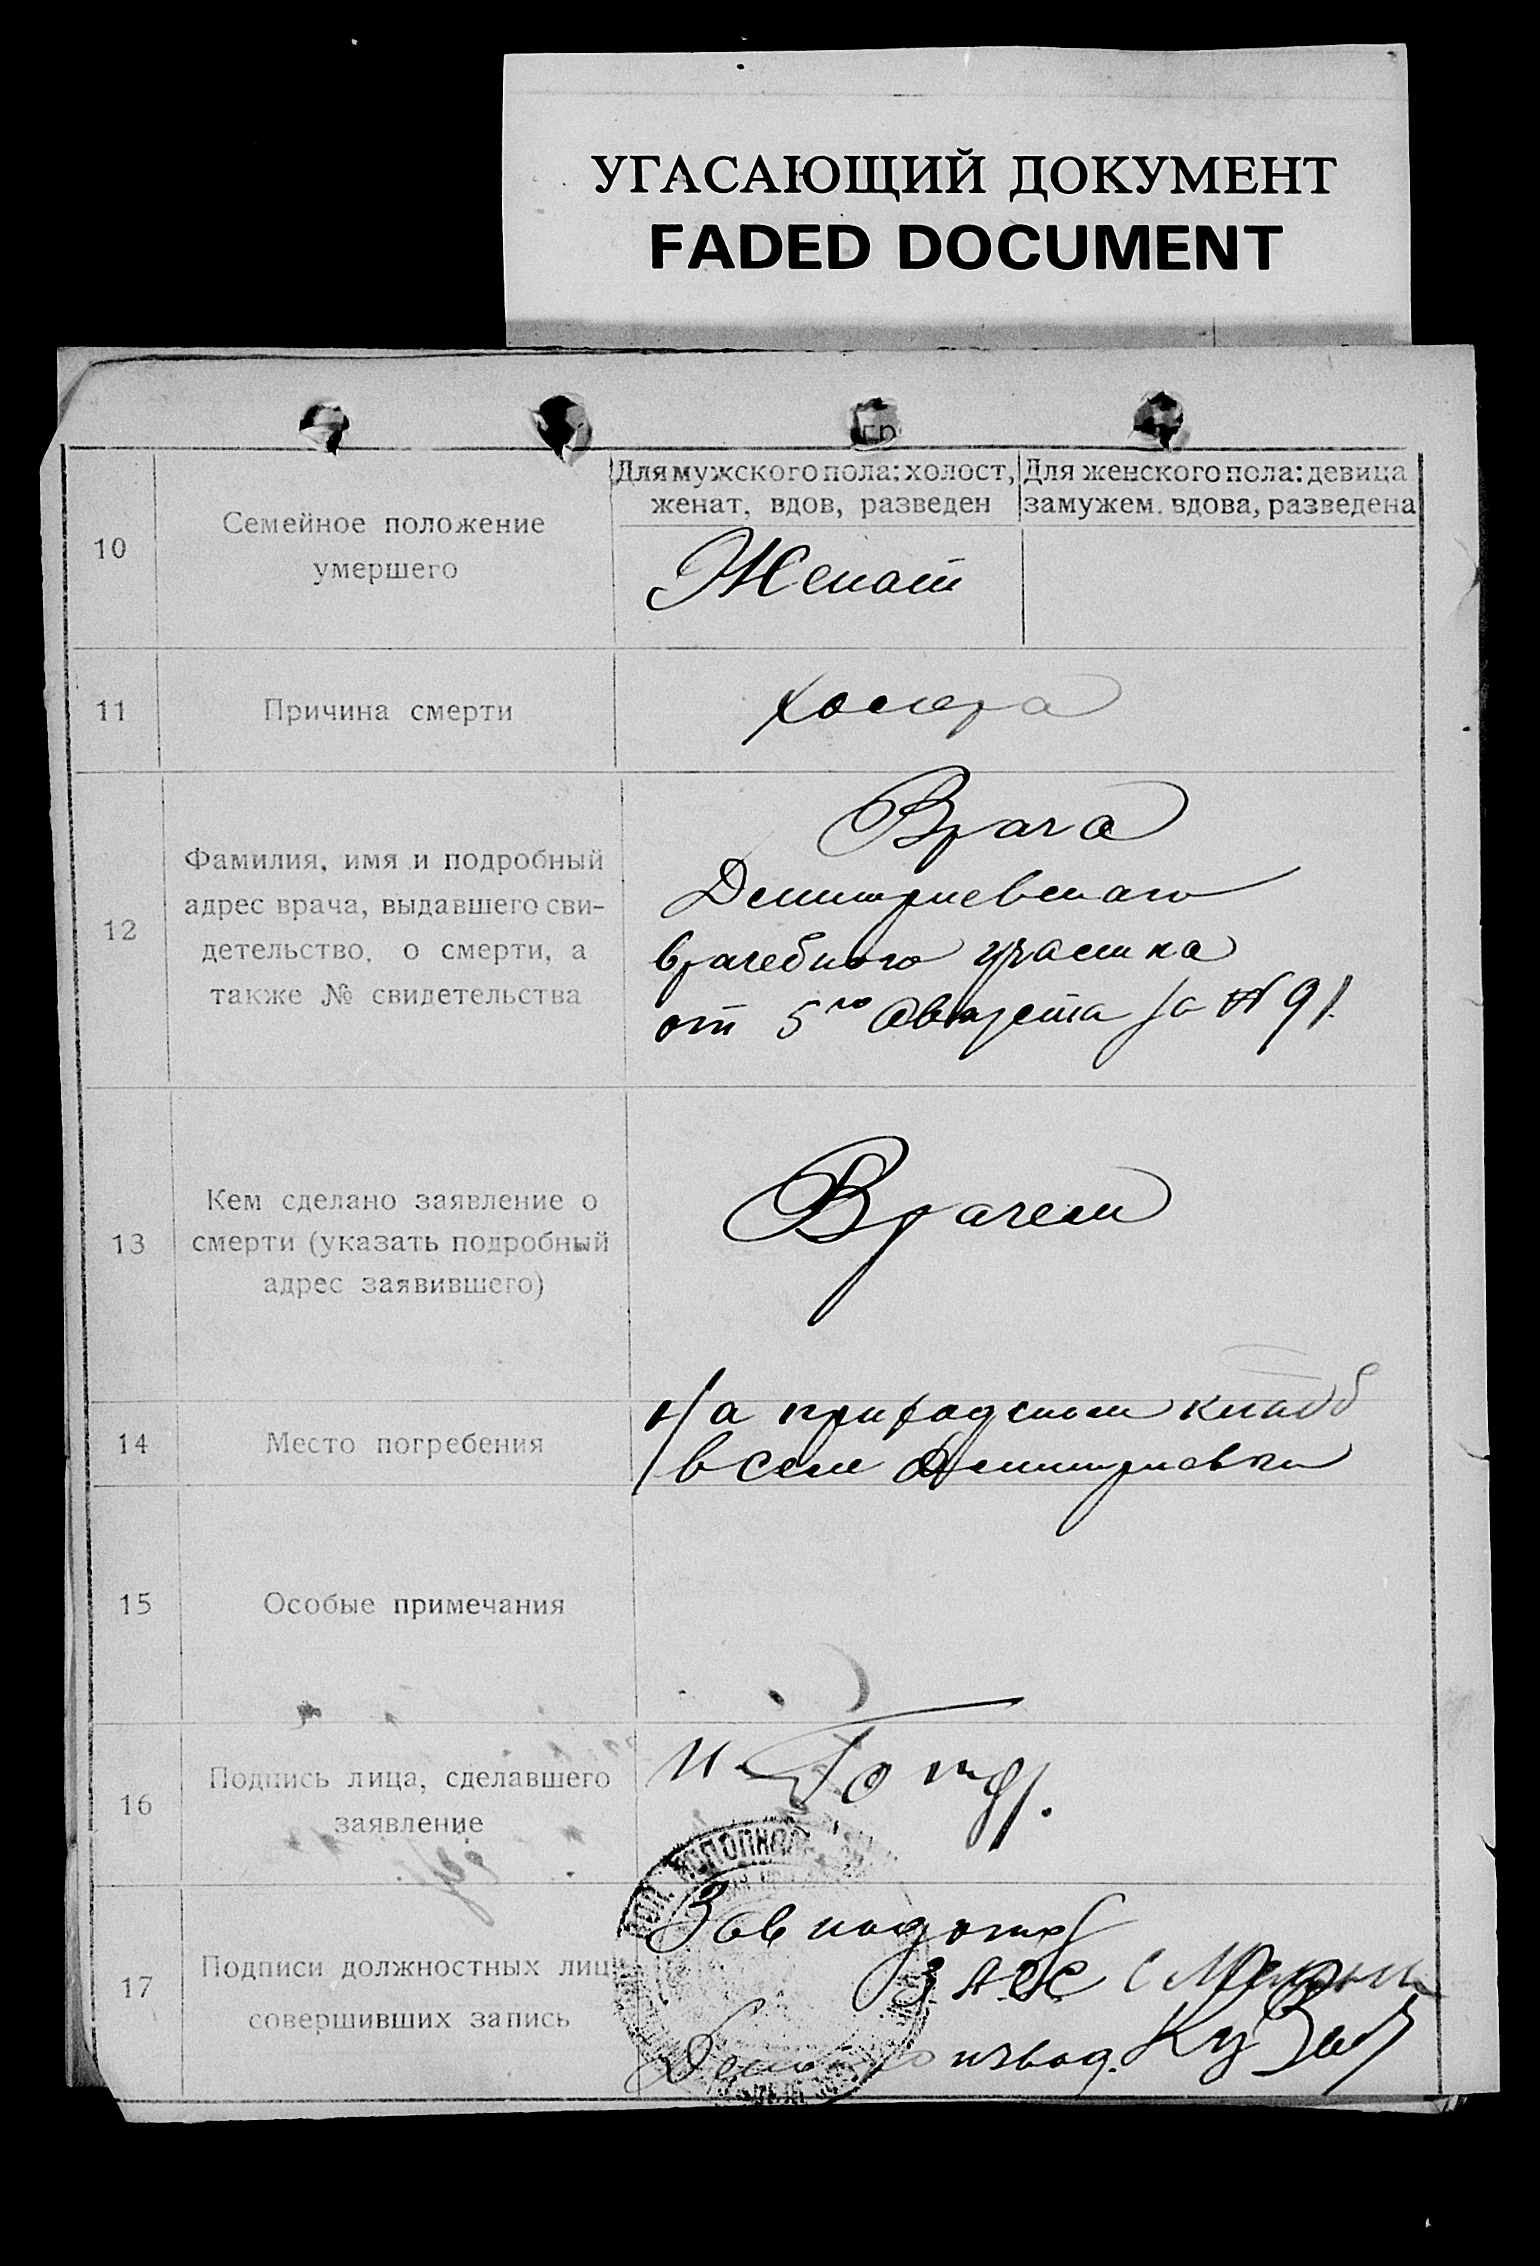 УГАСАЮЩИЙ ДОКУМЕНТ
FADED DOCUMENT
10
Семейное положение
умершего
Для мужского пола: холост,
женат, вдов, разведен
Для женского пола: девица
замужем. вдова, разведена
Женат
11
Причина смерти
Холера
12
Фамилия, имя и подробный
адрес врача, выдавшего сви-
детельство, о смерти, а
также № свидетельства
Врача
Демитриевского
врачебного участка
от 5го Августа за № 91.
13
Кем сделано заявление о
смерти (указать подробный
адрес заявившего)
Врачем
14
Место погребения
На приходском кладб
в селе Демитриевки
15
Особые примечания
16
Подпись лица, сделавшего
заявление
17
Подписи должностных лиц,
совершивших запись
Зав подотд
ЗАГС